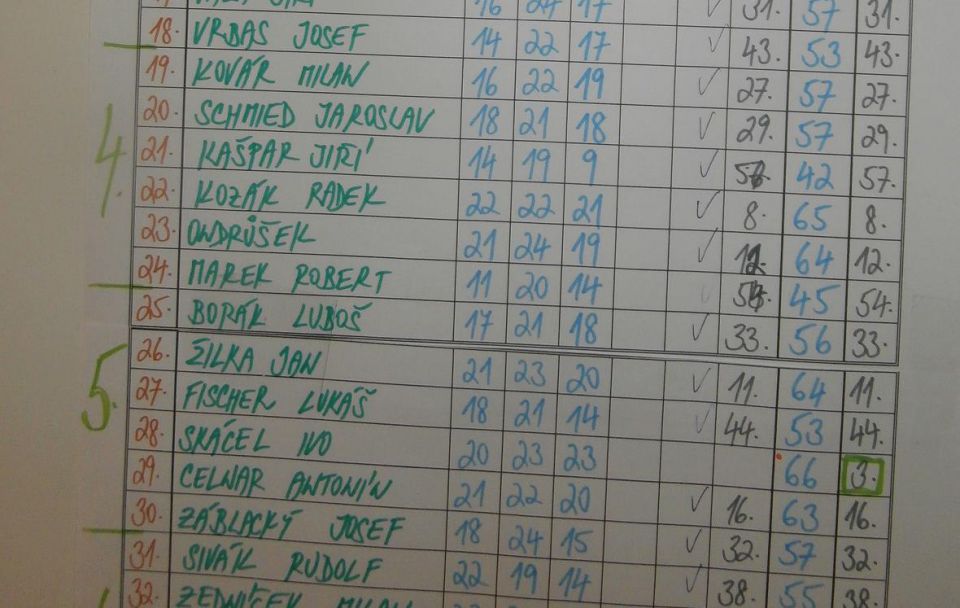 16 24 17 ✓ 31. 57 31.
18. VRBAS JOSEF 14 22 17 ✓ 43. 53 43.
19. KOVÁŘ MILAN 16 22 19 ✓ 27. 57 27.
20. SCHMIED JAROSLAV 18 21 18 ✓ 29. 57 29.
4.
21. KAŠPAR JIŘÍ 14 19 9 ✓ 57. 42 57.
22. KOZÁK RADEK 22 22 21 ✓ 8. 65 8.
23. ONDRŮŠEK 21 24 19 ✓ 12. 64 12.
24. MAREK ROBERT 11 20 14 ✓ 54. 45 54.
25. BORÁK LUBOŠ 17 21 18 ✓ 33. 56 33.
26. ŽILKA JAN 21 23 20 ✓ 11. 64 11.
5.
27. FISCHER LUKÁŠ 18 21 14 ✓ 44. 53 44.
28. SKÁCEL IVO 20 23 23 66 3.
29. CELNAR ANTONÍN 21 22 20 ✓ 16. 63 16.
30. ZÁBLACKÝ JOSEF 18 24 15 ✓ 32. 57 32.
31. SIVÁK RUDOLF 22 19 14 ✓ 38. 55 38.
32. ZEDNÍČEK MILAN